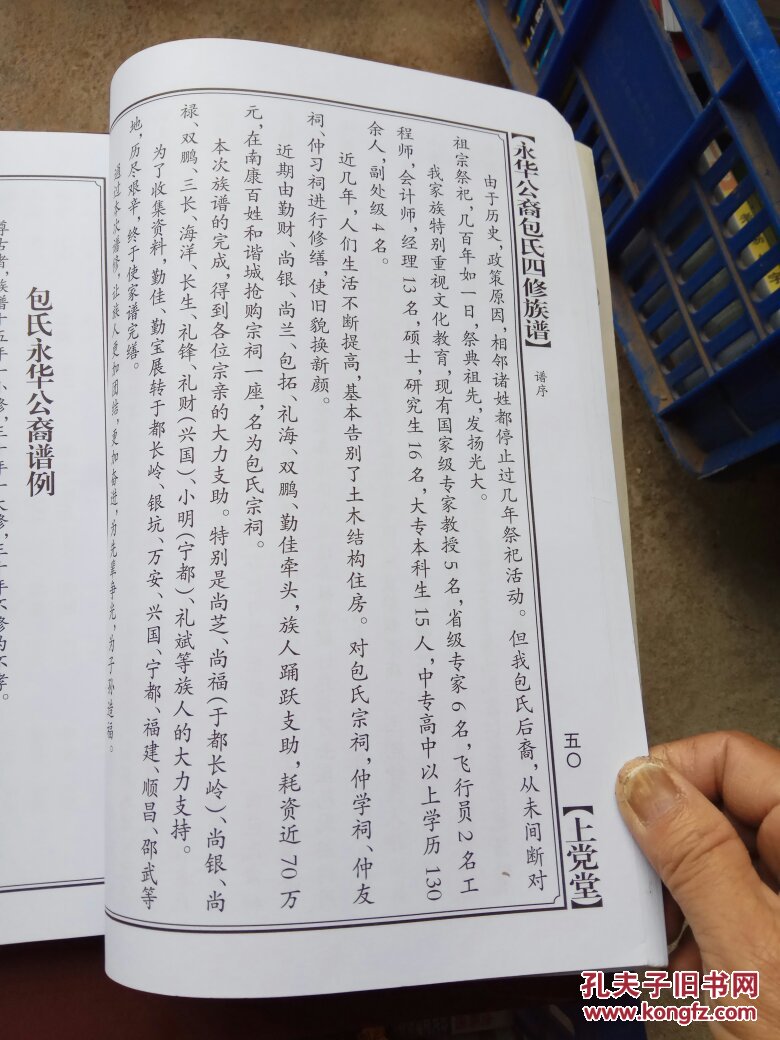 【永华公裔包氏四修族谱】
谱序
五〇
【上党堂】
由于历史，政策原因，相邻诸姓都停止过几年祭祀活动。但我包氏后裔，从未间断对
祖宗祭祀，几百年如一日，祭典祖先，发扬光大。
我家族特别重视文化教育，现有国家级专家教授5名，省级专家6名，飞行员2名工
程师，会计师，经理13名，硕士，研究生16名，大专本科生15人，中专高中以上学历130
余人，副处级4名。
近几年，人们生活不断提高，基本告别了土木结构住房。对包氏宗祠，仲学祠、仲友
祠、仲习祠进行修缮，使旧貌换新颜。
近期由勤财、尚银、尚兰、包拓、礼海、双鹏、勤佳牵头，族人踊跃支助，耗资近70万
元，在南康百姓和谐城抢购宗祠一座，名为包氏宗祠。
本次族谱的完成，得到各位宗亲的大力支助。特别是尚芝、尚福（于都长岭）、尚银、尚
禄、双鹏、三长、海洋、长生、礼锋、礼财（兴国）、小明（宁都）、礼斌等族人的大力支持。
为了收集资料，勤佳、勤宝展转于都长岭、银坑、万安、兴国、宁都、福建、顺昌、邵武等
地，历尽艰辛，终于使家谱完缮。
通过本次谱修，让族人更加团结，更加奋进，为先辈争光，为子孙造福。
包氏永华公裔谱例
尊古者，族谱十五年一小修，三十年一大修，三十年不修为不孝。
孔夫子旧书网
www.kongfz.com